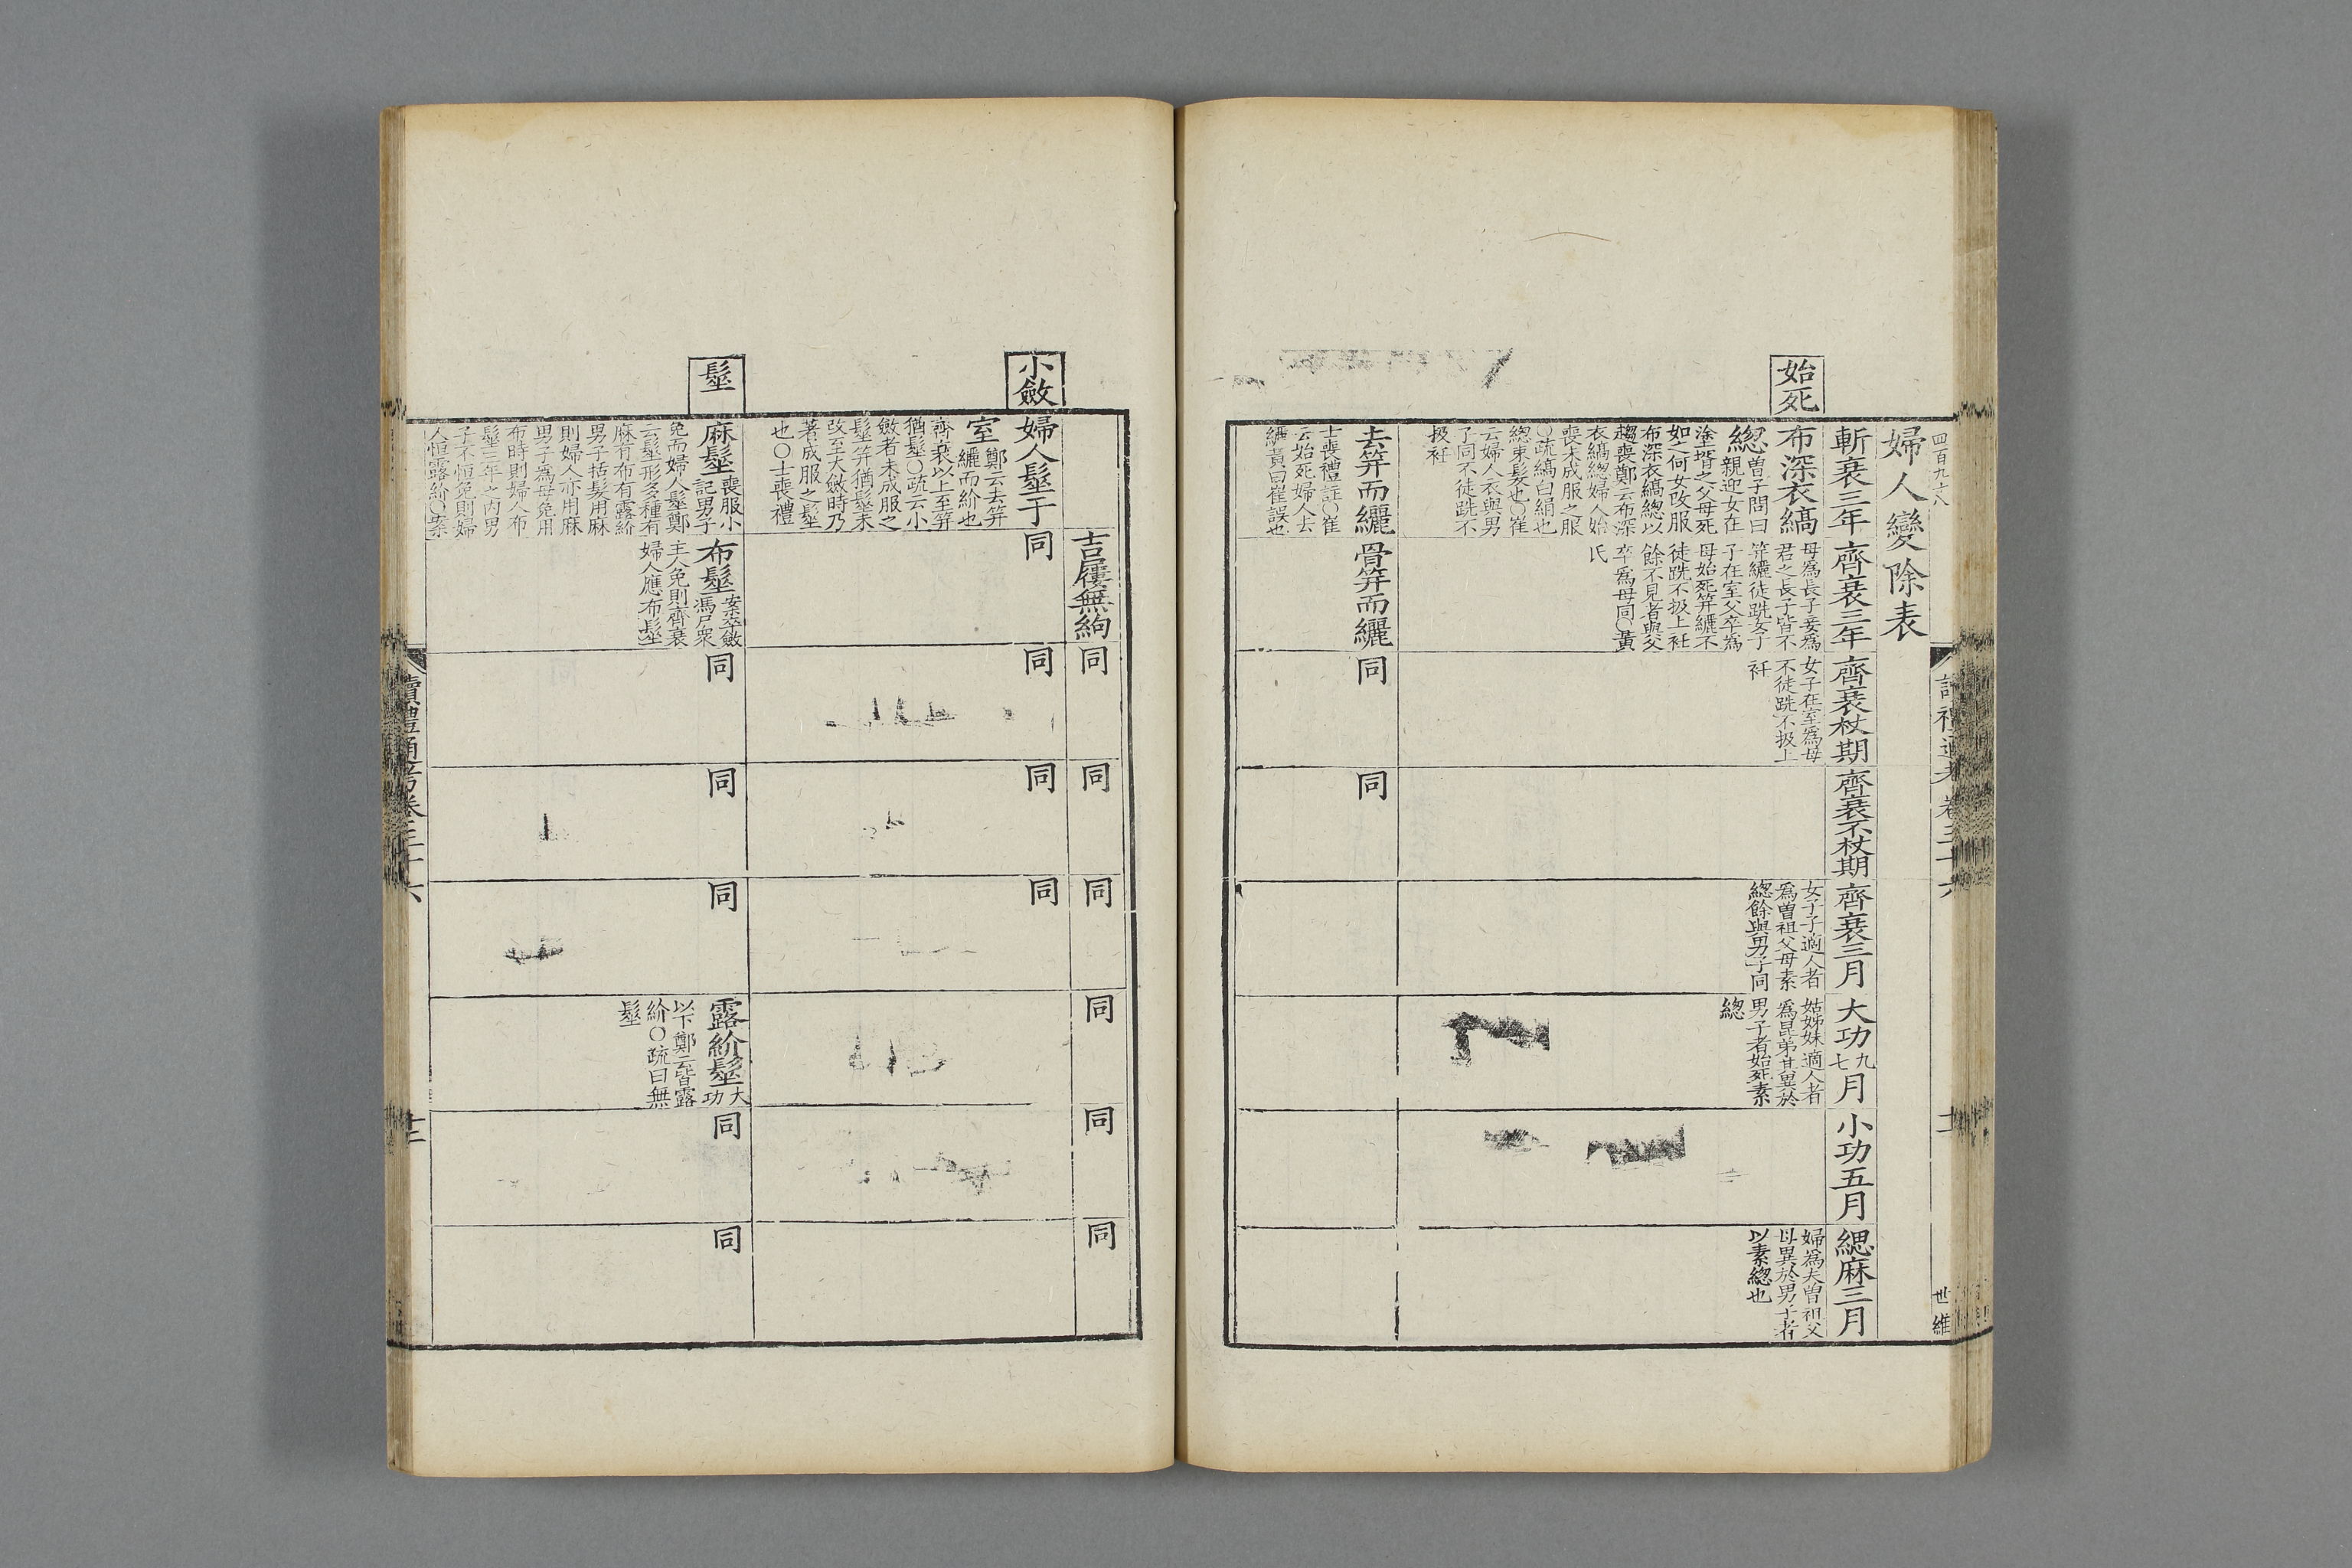 四百九十八
讀禮通考卷三十六
世維
婦人變除表
斬衰三年
齊衰三年
齊衰杖期
齊衰不杖期
齊衰三月
大功九七月
小功五月
緦麻三月
始死
布深衣縞
總曾子問曰
親迎女在
塗壻之父母死
如之何女改服
布深衣縞總以
趨喪鄭云布深
衣縞總婦人始
喪未成服之服
○疏縞白絹也
總束髮也○崔
云婦人衣與男
子同不徒跣不
扱衽
母爲長子妾爲
君之長子皆不
笄纚徒跣女子
子在室父卒爲
母始死笄纚不
徒跣不扱上衽
餘不見者與父
卒爲母同○黃
氏
女子在室爲母
不徒跣不扱上
衽
女子子適人者
爲曽祖父母素
總餘與男子同
姑姊妹適人者
爲昆弟其異於
男子者始死素
總
婦爲夫曽祖父
母異於男子者
以素總也
去笄而纚
士喪禮註○崔
云始死婦人去
纚黃曰崔誤也
骨笄而纚
同
同
吉屨無絇
同
同
同
同
同
同
小斂
婦人髽于
室鄭云去笄
纚而紒也
齊衰以上至笄
猶髽○疏云小
斂者未成服之
髽笄猶髽未
改至大斂時乃
著成服之髽
也○士喪禮
同
同
同
同
髽
麻髽喪服小
記男子
免而婦人髽鄭
云髽形多種有
麻有布有露紒
男子括髮用麻
則婦人亦用麻
男子爲母免用
布時則婦人布
髽三年之內男
子不恒免則婦
人恒露紒○案
布髽案卒斂
馮尸衆
主人免則齊衰
婦人應布髽
同
同
同
露紒髽大
功
以下鄭云皆露
紒○疏曰無
髽
同
同
讀禮通考卷三十六
十二